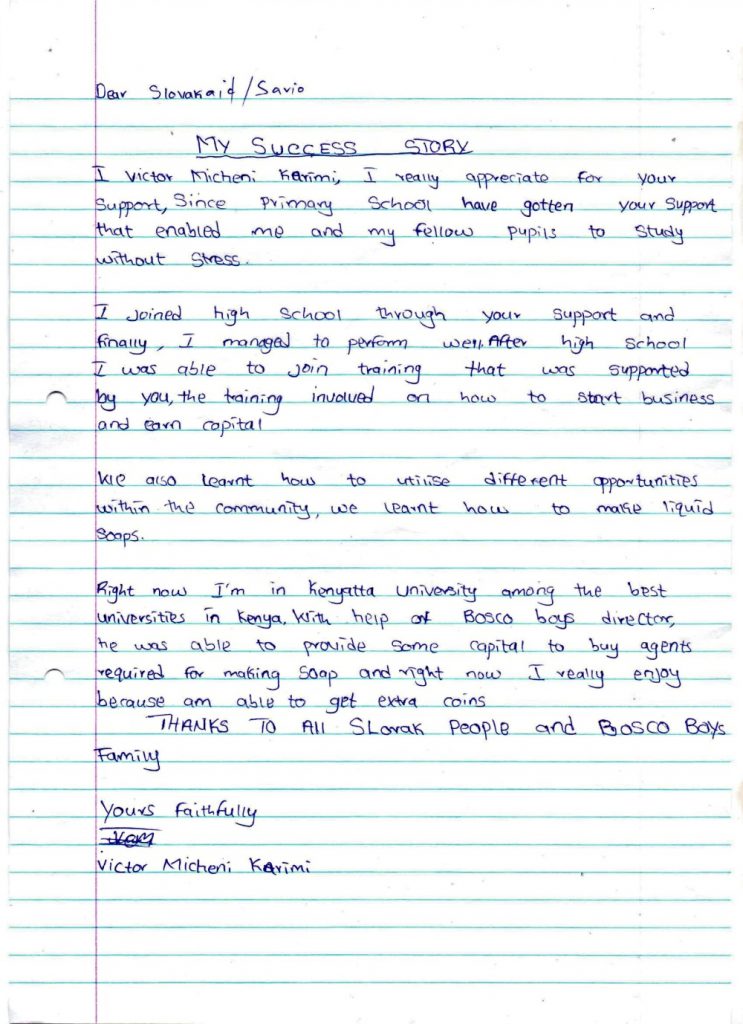 Dear Slovakaid/Savio
MY SUCCESS STORY
I Victor Micheni Karimi, I really appreciate for your
Support, Since Primary School have gotten your Support
that enabled me and my fellow pupils to Study
without Stress.
I joined high School through your Support and
finally, I managed to perform well. After high School
I was able to join training that was supported
by you, the training involved on how to start business
and earn capital
We also learnt how to utilise different opportunities
within the community, we learnt how to make liquid
Soaps.
Right now I'm in Kenyatta University among the best
universities in Kenya. With help of Bosco boys director,
he was able to provide some capital to buy agents
required for making Soap and right now I really enjoy
because am able to get extra coins
THANKS TO All SLovak People and BOSCO BOYS
Family
Yours Faithfully
Victor Micheni Karimi